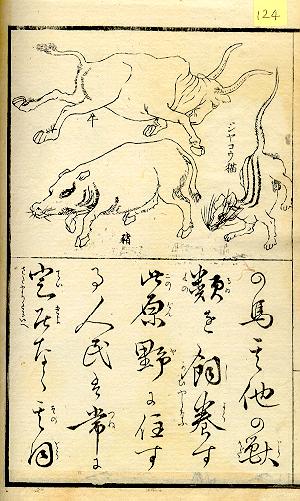 124
牛
ジヤコウ猫
猪
の馬其他の獣
類を飼養す
此原野に住す
る人民は常に
定居なく其同